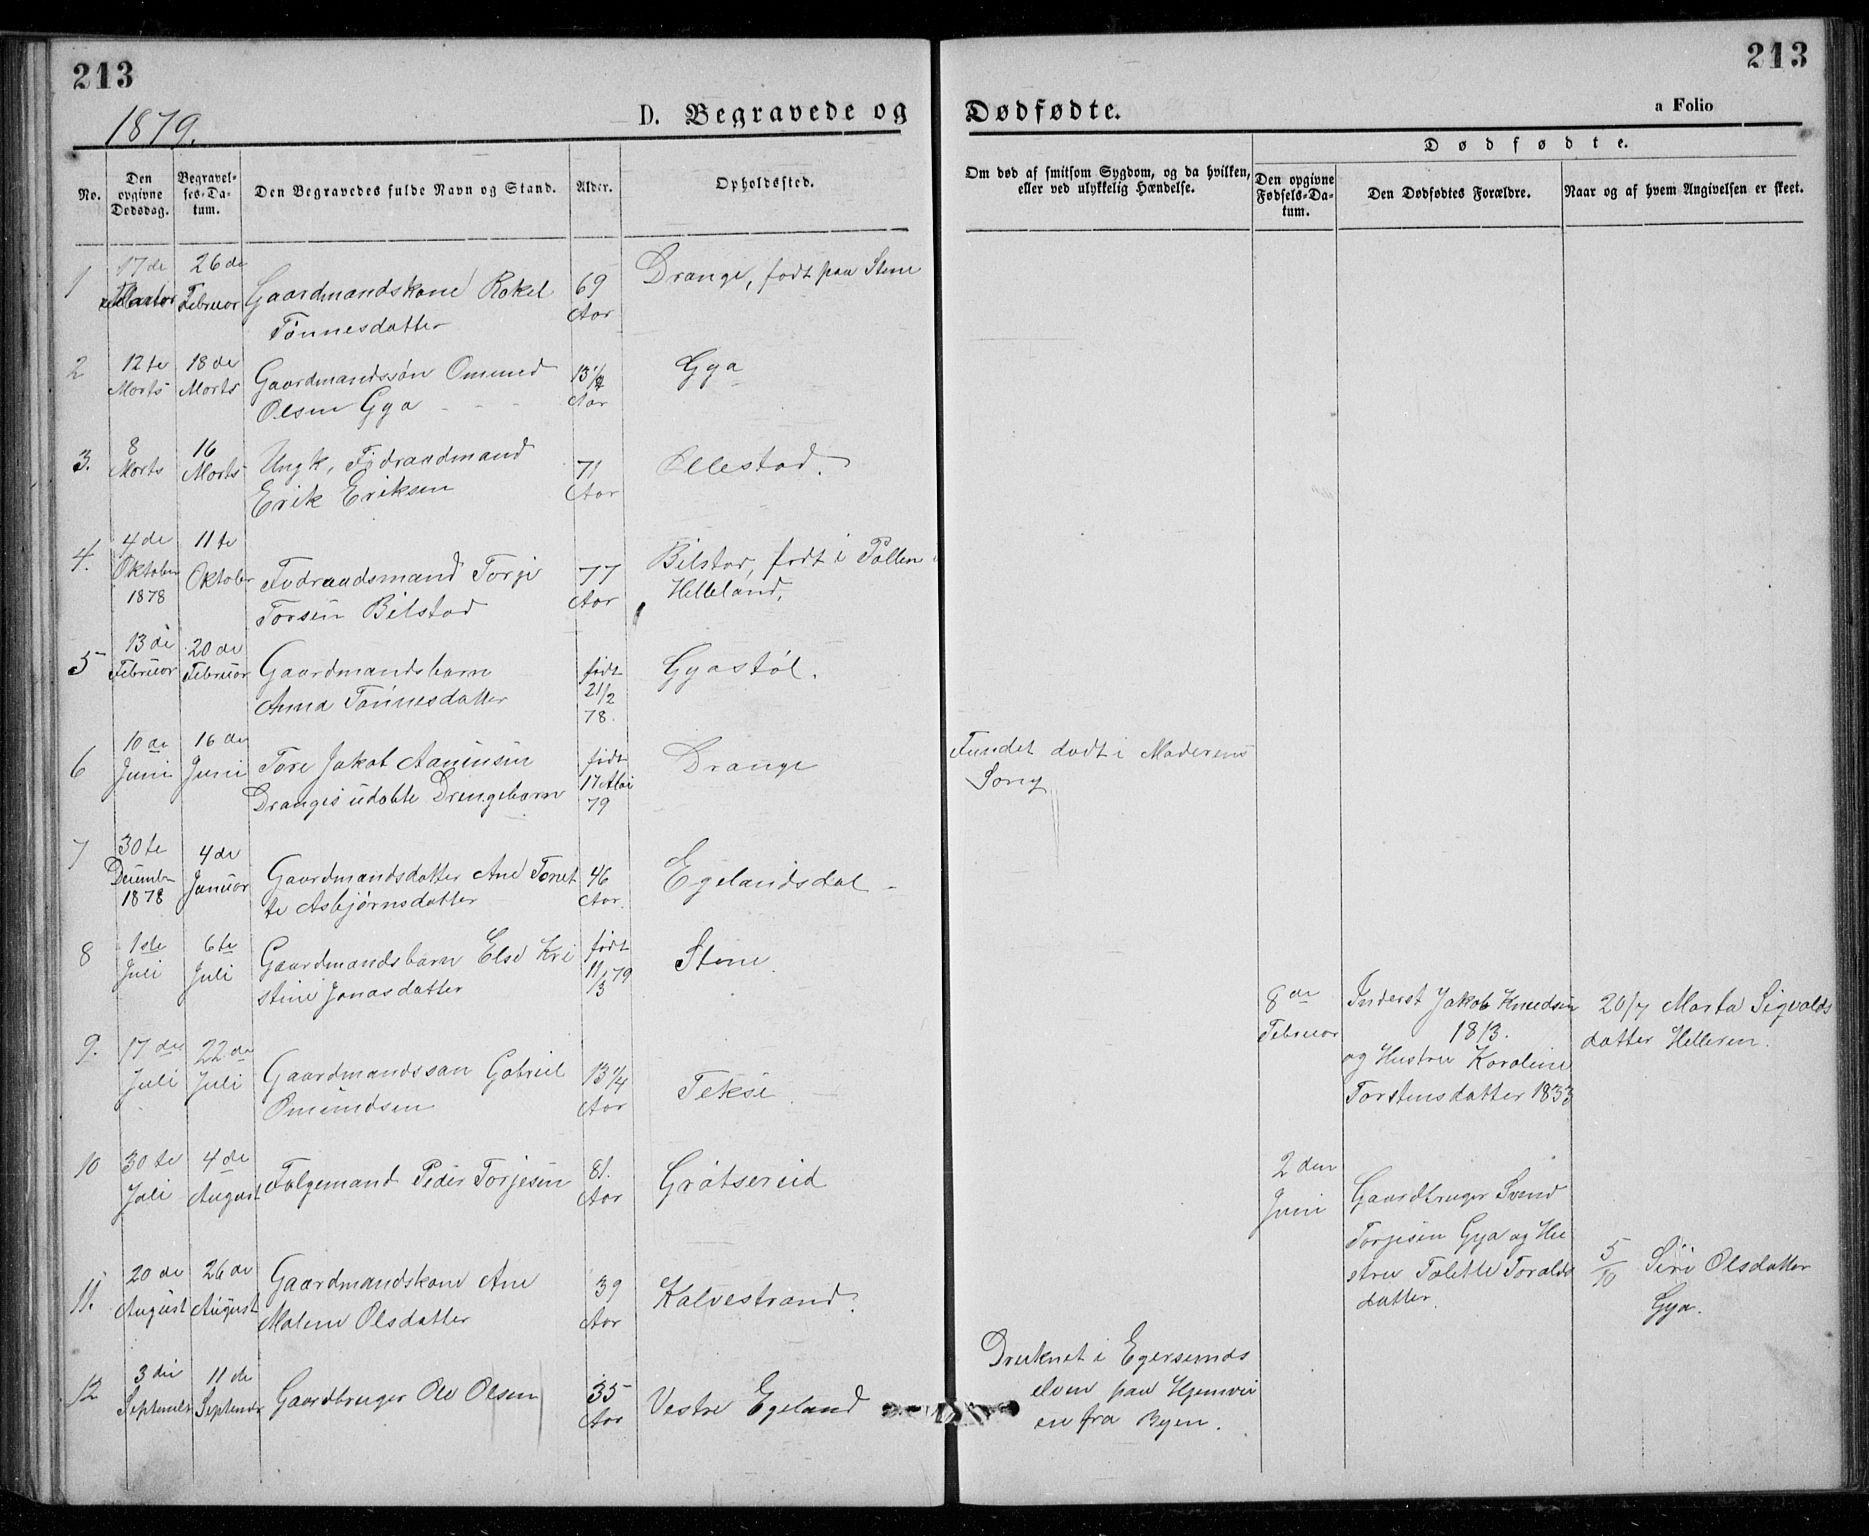 213
213
1879.
D. Begravede og Dødfødte.
a Folio
No.
Den opgivne Dødsdag.
Begravelses-Datum.
Den Begravedes fulde Navn og Stand.
Alder.
Opholdssted.
Om død af smitsom Sygdom, og da hvilken, eller ved ulykkelig Hændelse.
Dødfødte.
Den opgivne Fødsels-Datum.
Den Dødfødtes Forældre.
Naar og af hvem Angivelsen er skeet.
1 17de 26de
Februar Gaardmandskone Rakel 69 Drange, født paa Stene
Tønnesdatter Aar
2 12te 18de Gaardmandssøn Omund 13 1/2 Gya
Marts Marts Olsen Gya Aar
3. 8 16 Ungk, Fødraadmand 71 Ollestad.
Marts Marts Erik Eriksen Aar
4. 4de 11te
Oktober Oktober Fødraadsmand Torje 77 Bilstad, født i Pollen i
1878 Torsen Bilstad Aar Helleland,
5 13de 20de
Februar Februar Gaardmandsbarn født Gyastøl.
Anna Tønnesdatter 21/2
78.
6 10de 16de Tore Jakob Aanensen født Drange Fundet død i Moderens
Juni Juni Dranges udøbte Drengebarn 17 Mai Seng
79
7 30te 4de
Desember Januar Gaardmandsdatter Ane Tonet 46 Egelandsdal
1878 te Asbjørnsdatter Aar.
8 1ste 6te Gaardmandsbarn Else Kri født Stene
Juli Juli stine Jonasdatter 11/3 79
8de Inderst Jakob Knudsen 20/7 Marta Sigvalds
Februar 1813. datter Helleren.
og Hustru Karoline
Torstensdatter 1833
9. 17de 22de
Juli Juli Gaardmandssøn Gabriel 13 1/4 Tekse
Omundsen Aar
10 30te 4de Følgemand Peder Torjesen 81. Grøtsereid
Juli August Aar
2den
Juni Gaardbruger Svend
Torjesen Gya og Hu
stru Tolette Toralds 5/10 Siri Olsdatter
datter. Gya.
11. 20de 26de Gaardmandskone Ane 39 Kalvestrand.
August August Malene Olsdatter Aar
12 3die 11de
September September Gaardbruger Ole Olsen 35 Vestre Egeland
Aar
Druknet i Egersunds
elven paa Hjemvei
en fra Byen.